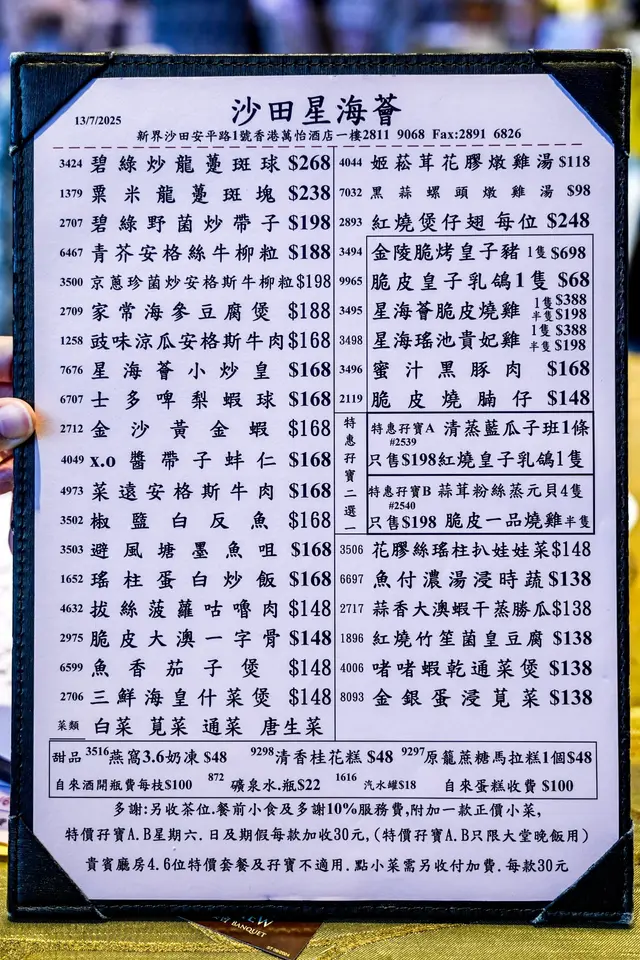 沙田星海薈
13/7/2025
新界沙田安平路1號香港萬怡酒店一樓2811 9068 Fax:2891 6826
3424 碧綠炒龍躉斑球 $268
1379 粟米龍躉斑塊 $238
2707 碧綠野菌炒帶子 $198
6467 青芥安格絲牛柳粒 $188
3500 京蔥珍菌炒安格斯牛柳粒 $198
2709 家常海參豆腐煲 $188
1258 豉味涼瓜安格斯牛肉 $168
7676 星海薈小炒皇 $168
6707 士多啤梨蝦球 $168
2712 金沙黃金蝦 $168
4049 x.o 醬帶子蚌仁 $168
4973 菜遠安格斯牛肉 $168
3502 椒鹽白反魚 $168
3503 避風塘墨魚咀 $168
1652 瑤柱蛋白炒飯 $168
4632 拔絲菠蘿咕嚕肉 $148
2975 脆皮大澳一字骨 $148
6599 魚香茄子煲 $148
2706 三鮮海皇什菜煲 $148
菜類 白菜 莧菜 通菜 唐生菜
4044 姬菘茸花膠燉雞湯 $118
7032 黑蒜螺頭燉雞湯 $98
2893 紅燒煲仔翅 每位 $248
3494 金陵脆烤皇子豬 1隻 $698
9965 脆皮皇子乳鴿1隻 $68
3495 星海薈脆皮燒雞 1隻 $388
半隻 $198
3498 星海瑤池貴妃雞 1隻 $388
半隻 $198
3496 蜜汁黑豚肉 $168
2119 脆皮燒腩仔 $148
特惠孖寶二選一
特惠孖寶A 清蒸藍瓜子班1條
#2539
只售$198紅燒皇子乳鴿1隻
特惠孖寶B 蒜茸粉絲蒸元貝4隻
#2540
只售$198 脆皮一品燒雞半隻
3506 花膠絲瑤柱扒娃娃菜 $148
6697 魚付濃湯浸時蔬 $138
2717 蒜香大澳蝦干蒸勝瓜 $138
1896 紅燒竹笙菌皇豆腐 $138
4006 啫啫蝦乾通菜煲 $138
8093 金銀蛋浸莧菜 $138
甜品 3516燕窩3.6奶凍 $48 9298清香桂花糕 $48 9297原籠蔗糖馬拉糕1個$48
自來酒開瓶費每枝$100 872 礦泉水.瓶$22 1616 汽水罐$18 自來蛋糕收費 $100
多謝:另收茶位.餐前小食及多謝10%服務費,附加一款正價小菜,
特價孖寶A.B星期六.日及期假每款加收30元,(特價孖寶A.B只限大堂晚飯用)
貴賓廳房4.6位特價套餐及孖寶不適用.點小菜需另收付加費.每款30元
BANQUET